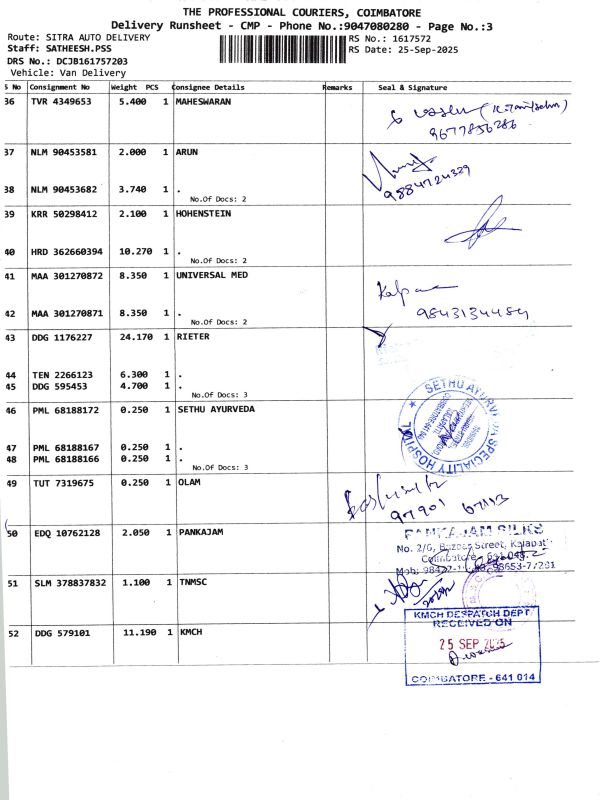 THE PROFESSIONAL COURIERS, COIMBATORE
Delivery Runsheet - CMP - Phone No.:9047080280 - Page No.:3
Route: SITRA AUTO DELIVERY
RS No.: 1617572
Staff: SATHEESH.PSS
RS Date: 25-Sep-2025
DRS No.: DCJB161757203
Vehicle: Van Delivery
S No Consignment No Weight PCS Consignee Details Remarks Seal & Signature
36 TVR 4349653 5.400 1 MAHESWARAN
9677856286
37 NLM 90453581 2.000 1 ARUN
9884724329
38 NLM 90453682 3.740 1 .
No.Of Docs: 2
39 KRR 50298412 2.100 1 HOHENSTEIN
40 HRD 362660394 10.270 1 .
No.Of Docs: 2
41 MAA 301270872 8.350 1 UNIVERSAL MED
Kalpana
9843134484
42 MAA 301270871 8.350 1 .
No.Of Docs: 2
43 DDG 1176227 24.170 1 RIETER
44 TEN 2266123 6.300 1 .
45 DDG 595453 4.700 1 .
No.Of Docs: 3
46 PML 68188172 0.250 1 SETHU AYURVEDA
SETHU AYURVEDA SPECIALITY HOSPITAL
47 PML 68188167 0.250 1 .
48 PML 68188166 0.250 1 .
No.Of Docs: 3
49 TUT 7319675 0.250 1 OLAM
97901 67113
50 EDQ 10762128 2.050 1 PANKAJAM
PANKAJAM SILKS
No. 2/6, Bazaar Street, Kalapatti
Coimbatore - 641 048.
51 SLM 378837832 1.100 1 TNMSC
52 DDG 579101 11.190 1 KMCH
KMCH DESPATCH DEPT
RECEIVED ON
25 SEP 2025
COIMBATORE - 641 014